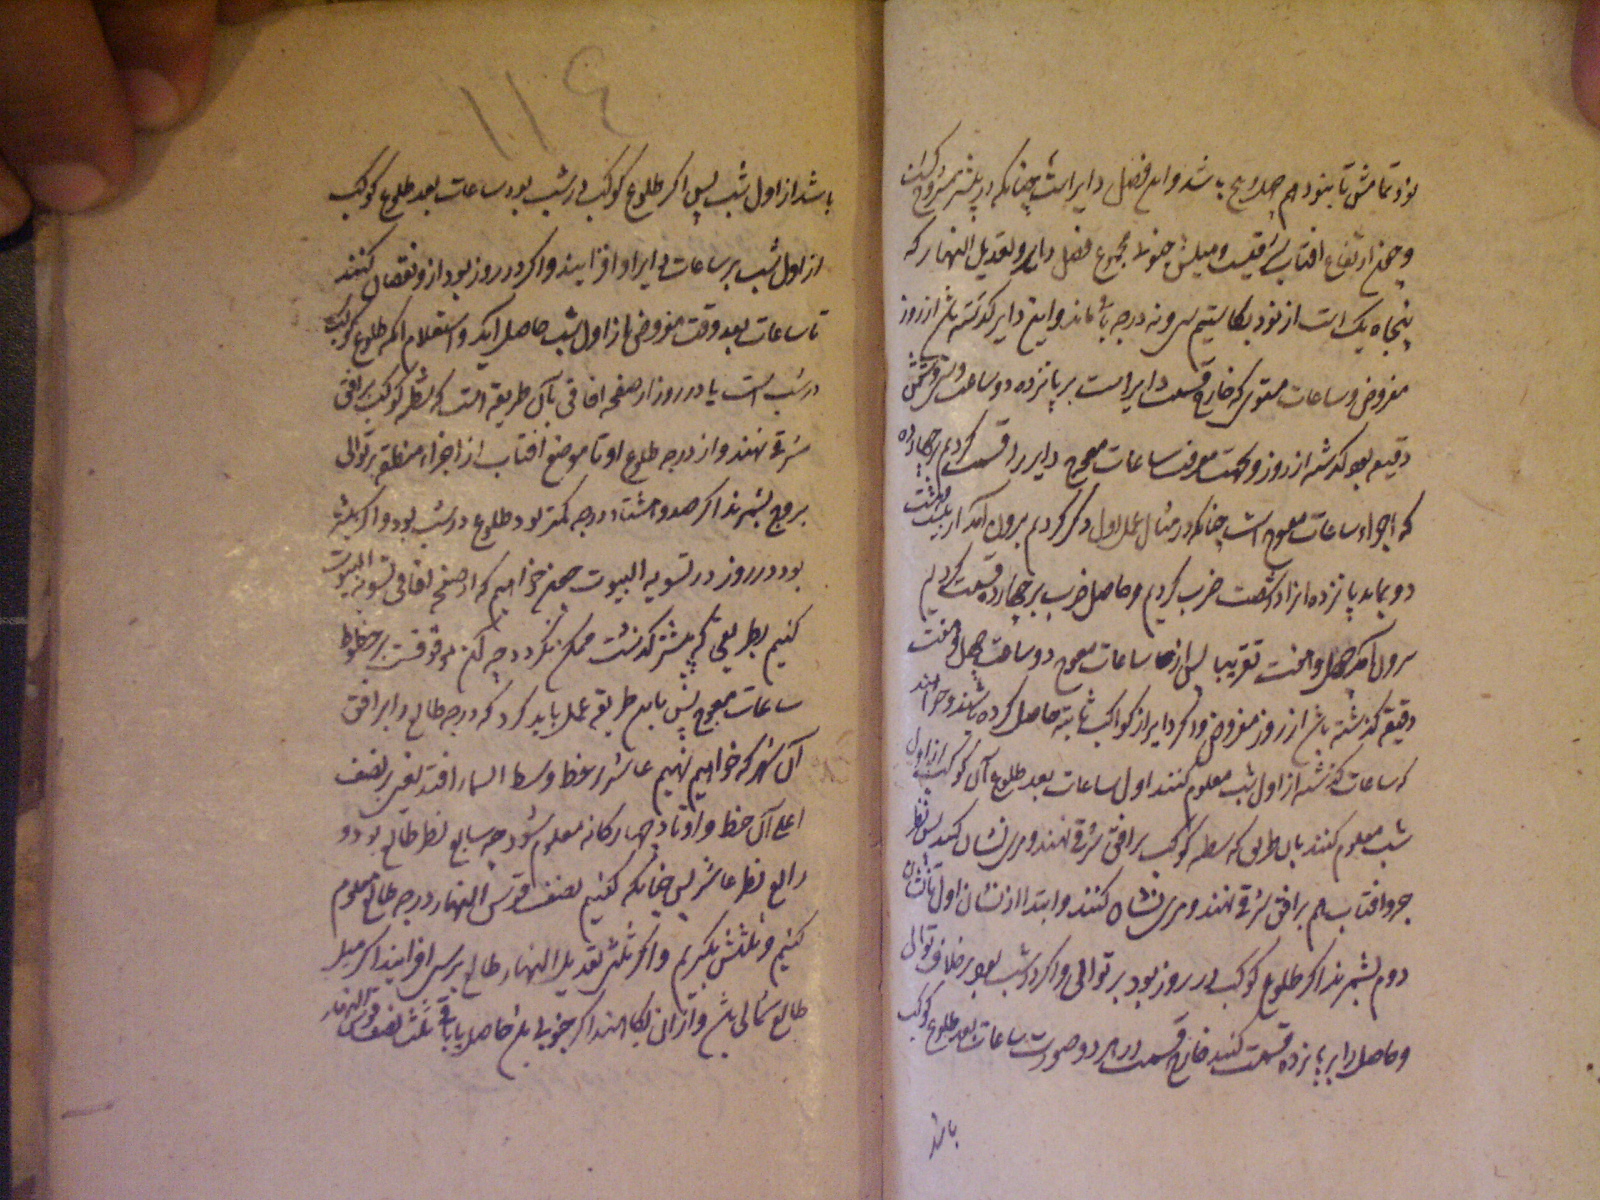 بود تمامش تا بنود هم چهل و پنج باشد و این فضل دایر است چنانکه در پیشتر
و چون ارتفاع افتاب شرقیست و میلش جنوبی مجموع فضل دایر و تعدیل النهار که
پنجاه یک است از نود بکاستیم سی و نه درجه باقی ماند و این دایر گذشته باشد از روز
مفروض و ساعات مستوی که خارج قسمت دایر است بر پانزده دو ساعت و سی و شش
دقیقه بود گذشته از روز و جهت معرفت ساعات معوج دایر را قسمت کردیم بر چهارده
که اجزاء ساعات معوج است چنانکه در مثال عمل اول ذکر کردیم برون آمد از قسمت
دو بماند یازده انرا در شصت ضرب کردیم و حاصل ضرب بر چهارده قسمت کردیم
برون آمد چهل و هفت تقریبا پس از ساعات معوج دو ساعت و چهل و هفت
دقیقه گذشته باشد از روز مفروض و اگر دایر از کواکب ثابته حاصل کرده باشند و خواهند
که ساعات گذشته از اول شب معلوم کنند اول ساعات بعد طلوع آن کوکب از اول
شب معلوم کنند بان طریق که شظیه کوکب بر افق شرقی نهند و مری نشان کنند پس نظیر
جزو افتاب هم بر افق شرقی نهند و مری نشان کنند و ابتدا از نشان اول تا نشان
دوم بشمرند اگر طلوع کوکب در روز بود بر توالی و اگر در شب بود بر خلاف توالی
و حاصل را بر پانزده قسمت کنند خارج قسمت در هر دو صورت ساعات بعد طلوع کوکب
باشد
۱۱۴
باشد از اول شب پس اگر طلوع کوکب در شب بود ساعات بعد طلوع کوکب
از اول شب بر ساعات دایر او افزایند و اگر در روز بود از و نقصان کنند
تا ساعات بعد وقت مفروض از اول شب حاصل آید و استعلام آنکه طلوع کوکب
در شب است یا در روز از صفحه افاقی بآن طریقه است که شظیه کوکب بر افق
شرقی نهند و از درجه طلوع او تا موضع افتاب از اجزاء منطقه بر توالی
بروج بشمرند اگر صد و هشتاد درجه کمتر بود طلوع در شب بود و اگر بیشتر
بود در روز در تسویه البیوت چون خواهیم که از صفحه افاقی تسویه البیوت
کنیم بطریقی که پیشتر گذشت ممکن نگردد چه آن موقوفست بر خطوط
ساعات معوج پس باین طریق عمل باید کرد که درجه طالع را بر افق
آن شهر که خواهیم نهیم عاشر بر خط وسط السماء افتد یعنی بر نصف
اعلی آن خط و اوتاد چهارگانه معلوم شود چه سابع نظیر طالع بود و
رابع نظیر عاشر پس چنانکه گفتیم نصف قوس النهار درجه طالع معلوم
کنیم و ثلثش بگیریم و اگر ثلث تعدیل النهار طالع بر سی افزایند اگر میل
طالع شمالی باشد و از ان بکاهند اگر جنوبی باشد حاصل یا باقی ثلث نصف قوس النهار